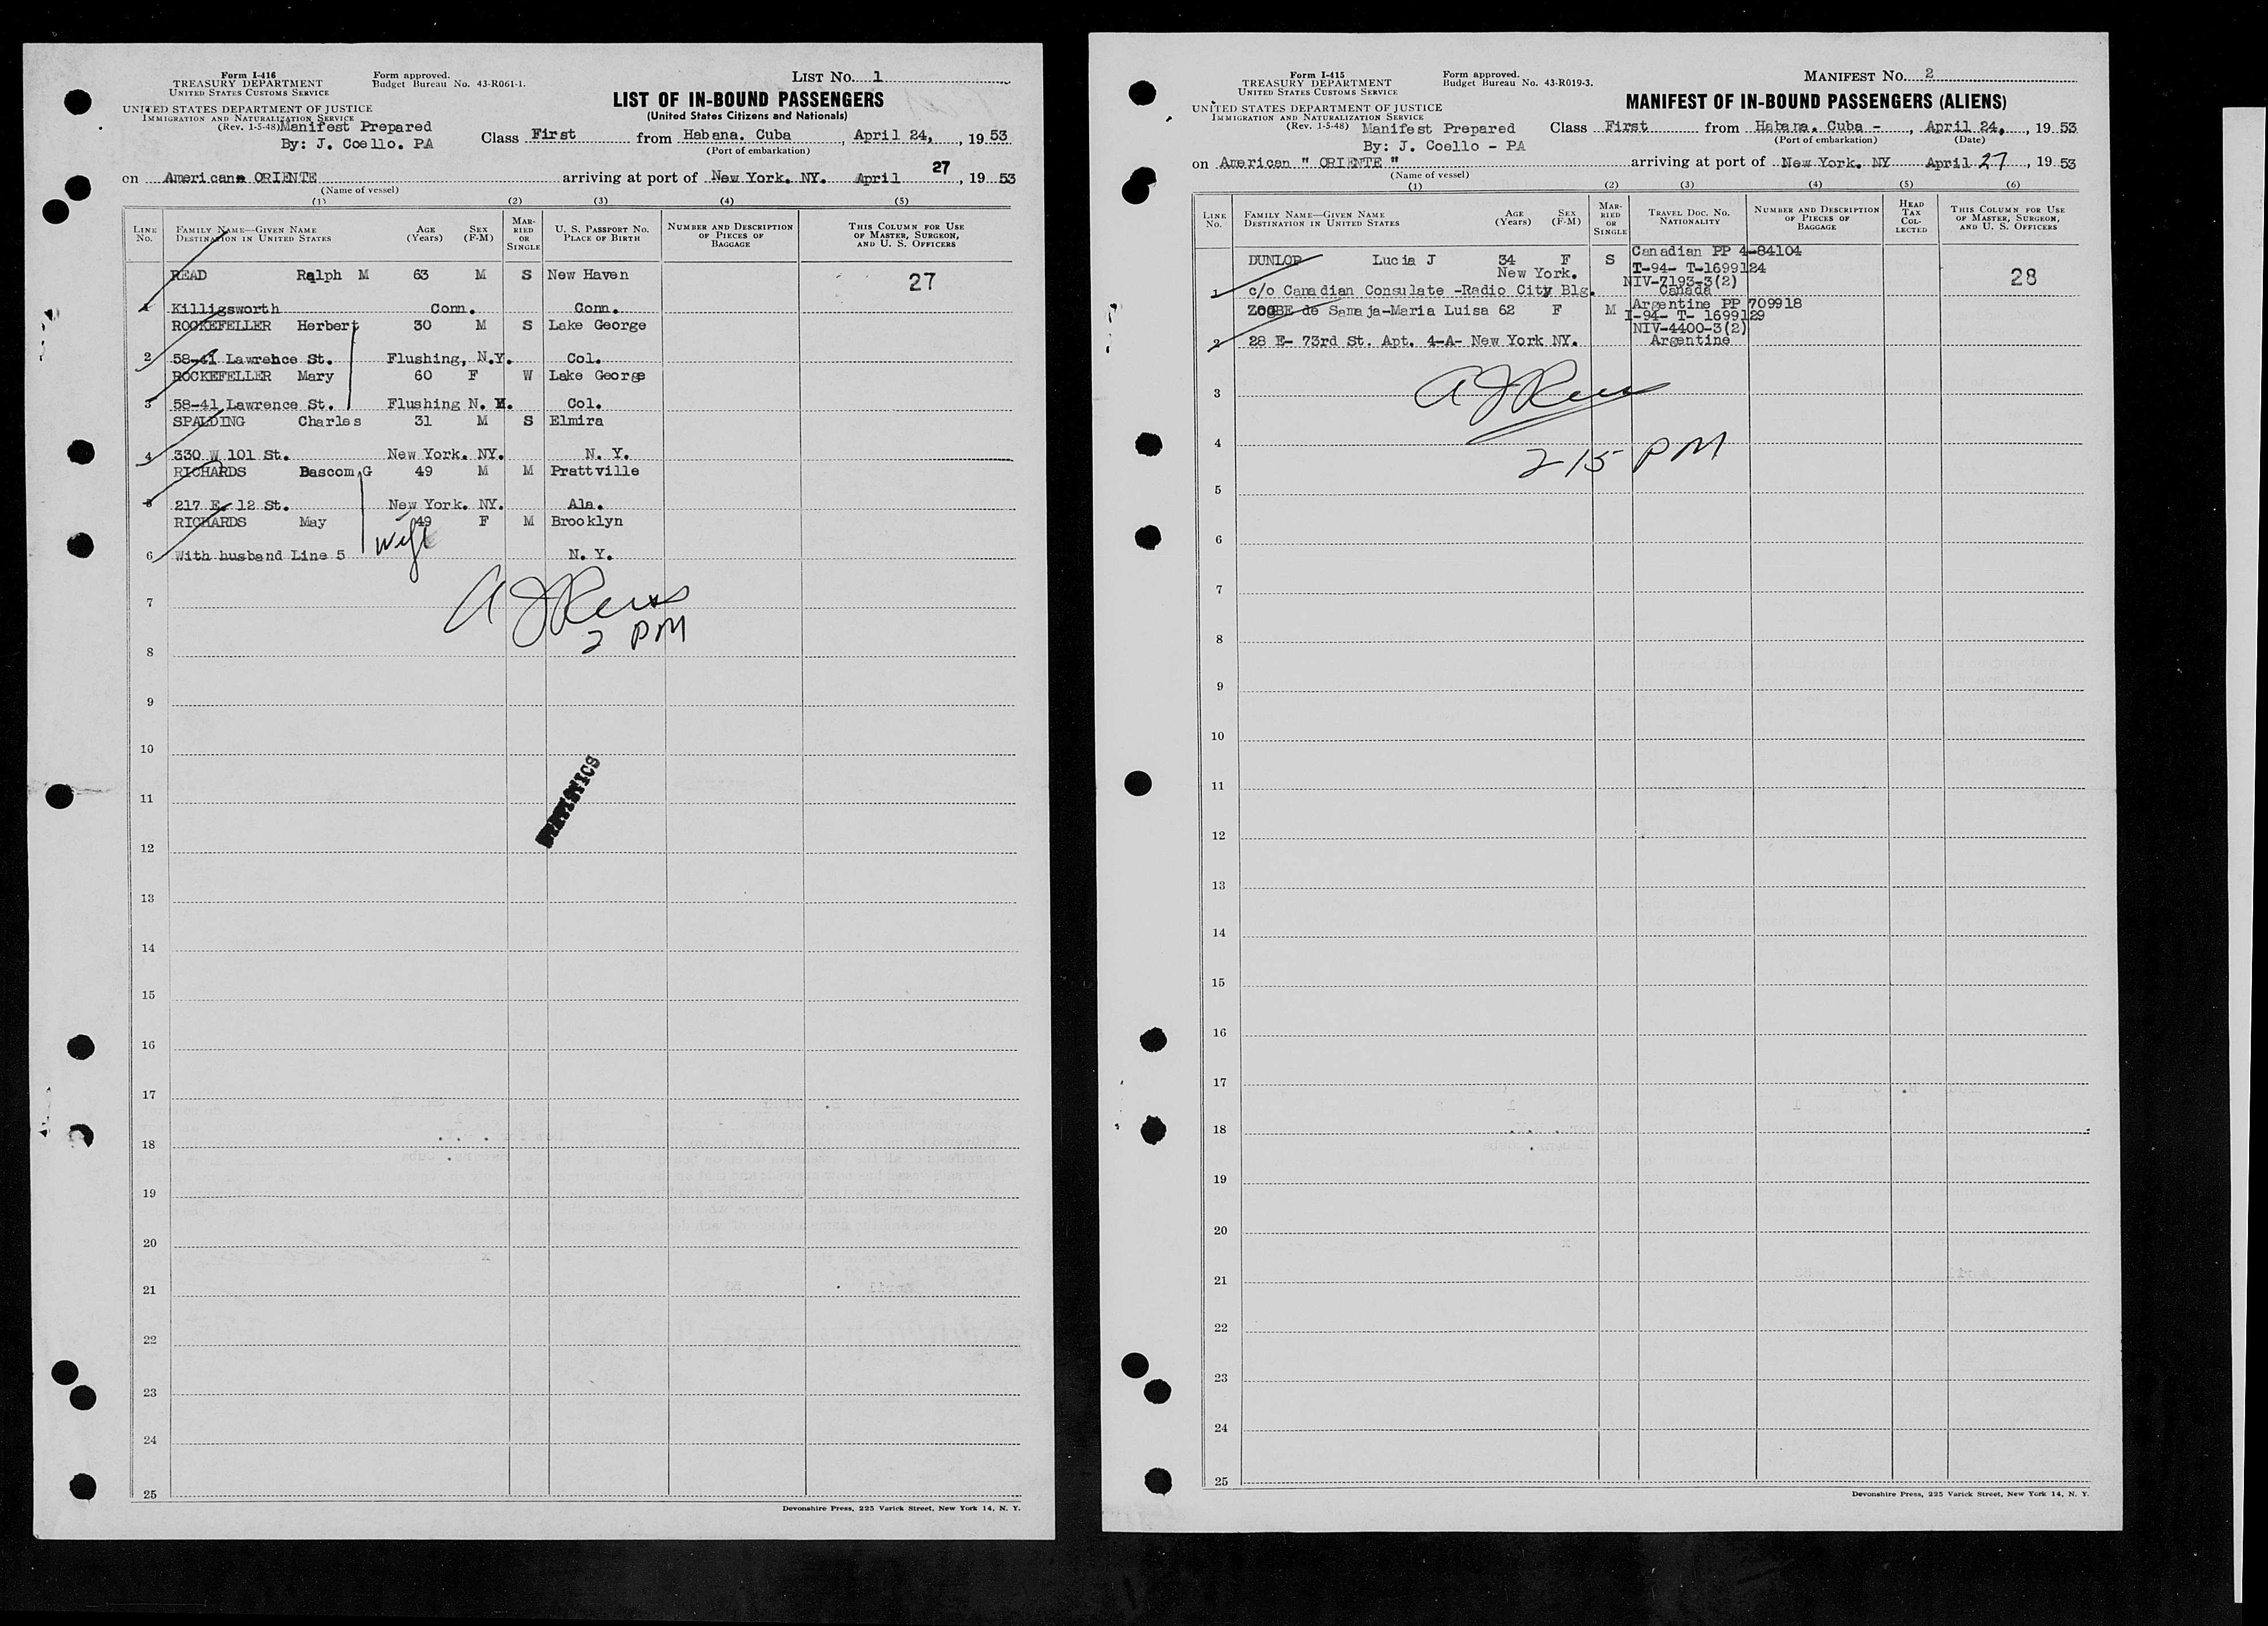 Form I-416
TREASURY DEPARTMENT
UNITED STATES CUSTOMS SERVICE
UNITED STATES DEPARTMENT OF JUSTICE
IMMIGRATION AND NATURALIZATION SERVICE
(Rev. 1-5-48)
Manifest Prepared
By: J. Coello. PA
Form approved.
Budget Bureau No. 43-R061-1.
LIST No. 1
LIST OF IN-BOUND PASSENGERS
(United States Citizens and Nationals)
Class First from Habana. Cuba, April 24, , 1953
(Port of embarkation)
on Americans ORIENTE arriving at port of New York. NY. April 27, 1953
(Name of vessel)
(1) (2) (3) (4) (5)
LINE No. FAMILY NAME—GIVEN NAME DESTINATION IN UNITED STATES AGE (Years) SEX (F-M) MARRIED OR SINGLE U. S. PASSPORT No. PLACE OF BIRTH NUMBER AND DESCRIPTION OF PIECES OF BAGGAGE THIS COLUMN FOR USE OF MASTER, SURGEON, AND U. S. OFFICERS
READ Ralph M 63 M S New Haven 27
1 Killigsworth Conn. Conn.
ROCKEFELLER Herbert 30 M S Lake George
2 58-41 Lawrence St. Flushing, N.Y. Col.
ROCKEFELLER Mary 60 F W Lake George
3 58-41 Lawrence St. Flushing N. Y. Col.
SPALDING Charles 31 M S Elmira
4 330 W 101 St. New York. NY. N. Y.
RICHARDS Bascom G 49 M M Prattville
5 217 E. 12 St. New York. NY. Ala.
RICHARDS May 49 F M Brooklyn
6 With husband Line 5 wife N. Y.
7
2 PM
8
9
10
11
12
13
14
15
16
17
18
19
20
21
22
23
24
25
Devonshire Press, 225 Varick Street, New York 14, N. Y.
Form I-415
TREASURY DEPARTMENT
UNITED STATES CUSTOMS SERVICE
UNITED STATES DEPARTMENT OF JUSTICE
IMMIGRATION AND NATURALIZATION SERVICE
(Rev. 1-5-48)
Manifest Prepared
By: J. Coello - PA
Form approved.
Budget Bureau No. 43-R019-3.
MANIFEST No. 2
MANIFEST OF IN-BOUND PASSENGERS (ALIENS)
Class First from Habana. Cuba - , April 24, , 1953
(Port of embarkation) (Date)
on American " ORIENTE " arriving at port of New York. NY April 27, 1953
(Name of vessel)
(1) (2) (3) (4) (5) (6)
LINE No. FAMILY NAME—GIVEN NAME DESTINATION IN UNITED STATES AGE (Years) SEX (F-M) MARRIED OR SINGLE TRAVEL DOC. No. NATIONALITY NUMBER AND DESCRIPTION OF PIECES OF BAGGAGE HEAD TAX COLLECTED THIS COLUMN FOR USE OF MASTER, SURGEON, AND U. S. OFFICERS
Canadian PP 4-84104
DUNLOP Lucia J 34 F S
New York. T-94- T-1699124 28
NIV-7193-3(2)
1 c/o Canadian Consulate -Radio City Blg. Canada
ZOGBE de Samaja-Maria Luisa 62 F M Argentine PP 709918
I-94- T- 1699129
NIV-4400-3(2)
2 28 E- 73rd St. Apt. 4-A- New York NY. Argentine
3
4
2 15 PM
5
6
7
8
9
10
11
12
13
14
15
16
17
18
19
20
21
22
23
24
25
Devonshire Press, 225 Varick Street, New York 14, N. Y.